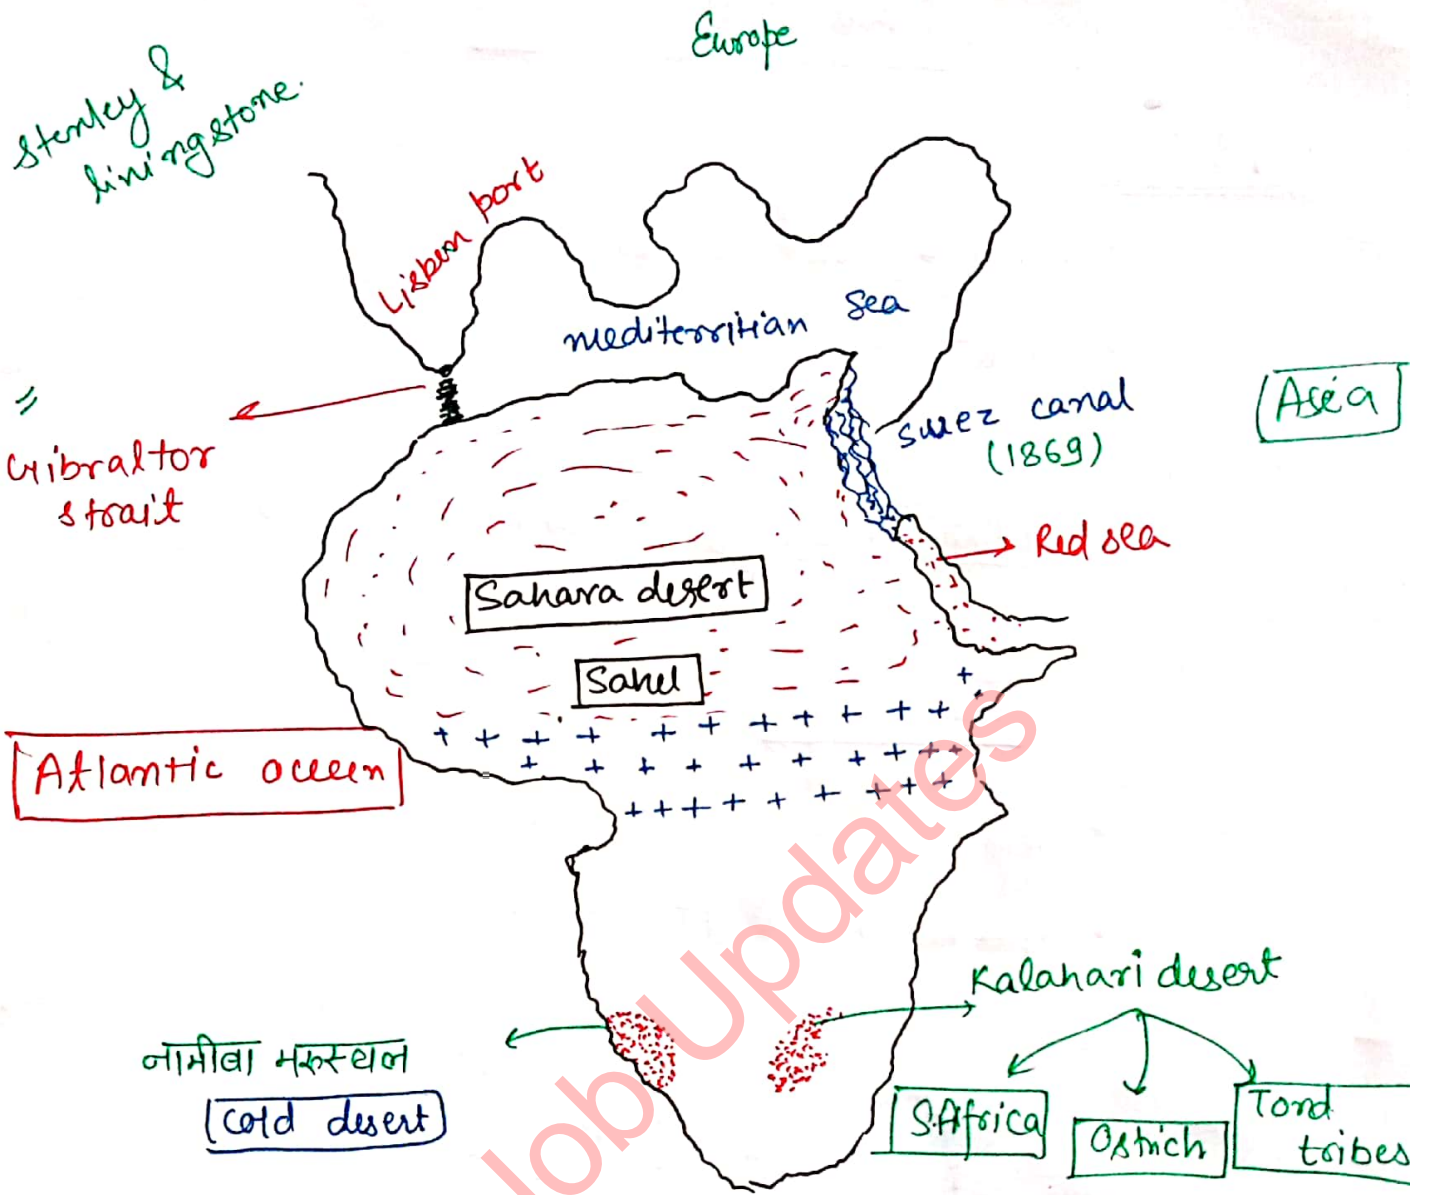 Europe
Stenley &
livingstone.
Lisbon port
mediterritian Sea
Asia
suez canal
(1869)
=
Gibraltor
strait
Red sea
Sahara desert
Sahel
Atlantic oceen
Kalahari desert
नामीबा मरुस्थल
Cold desert
S.Africa
Ostrich
Tond
tribes
Job Updates